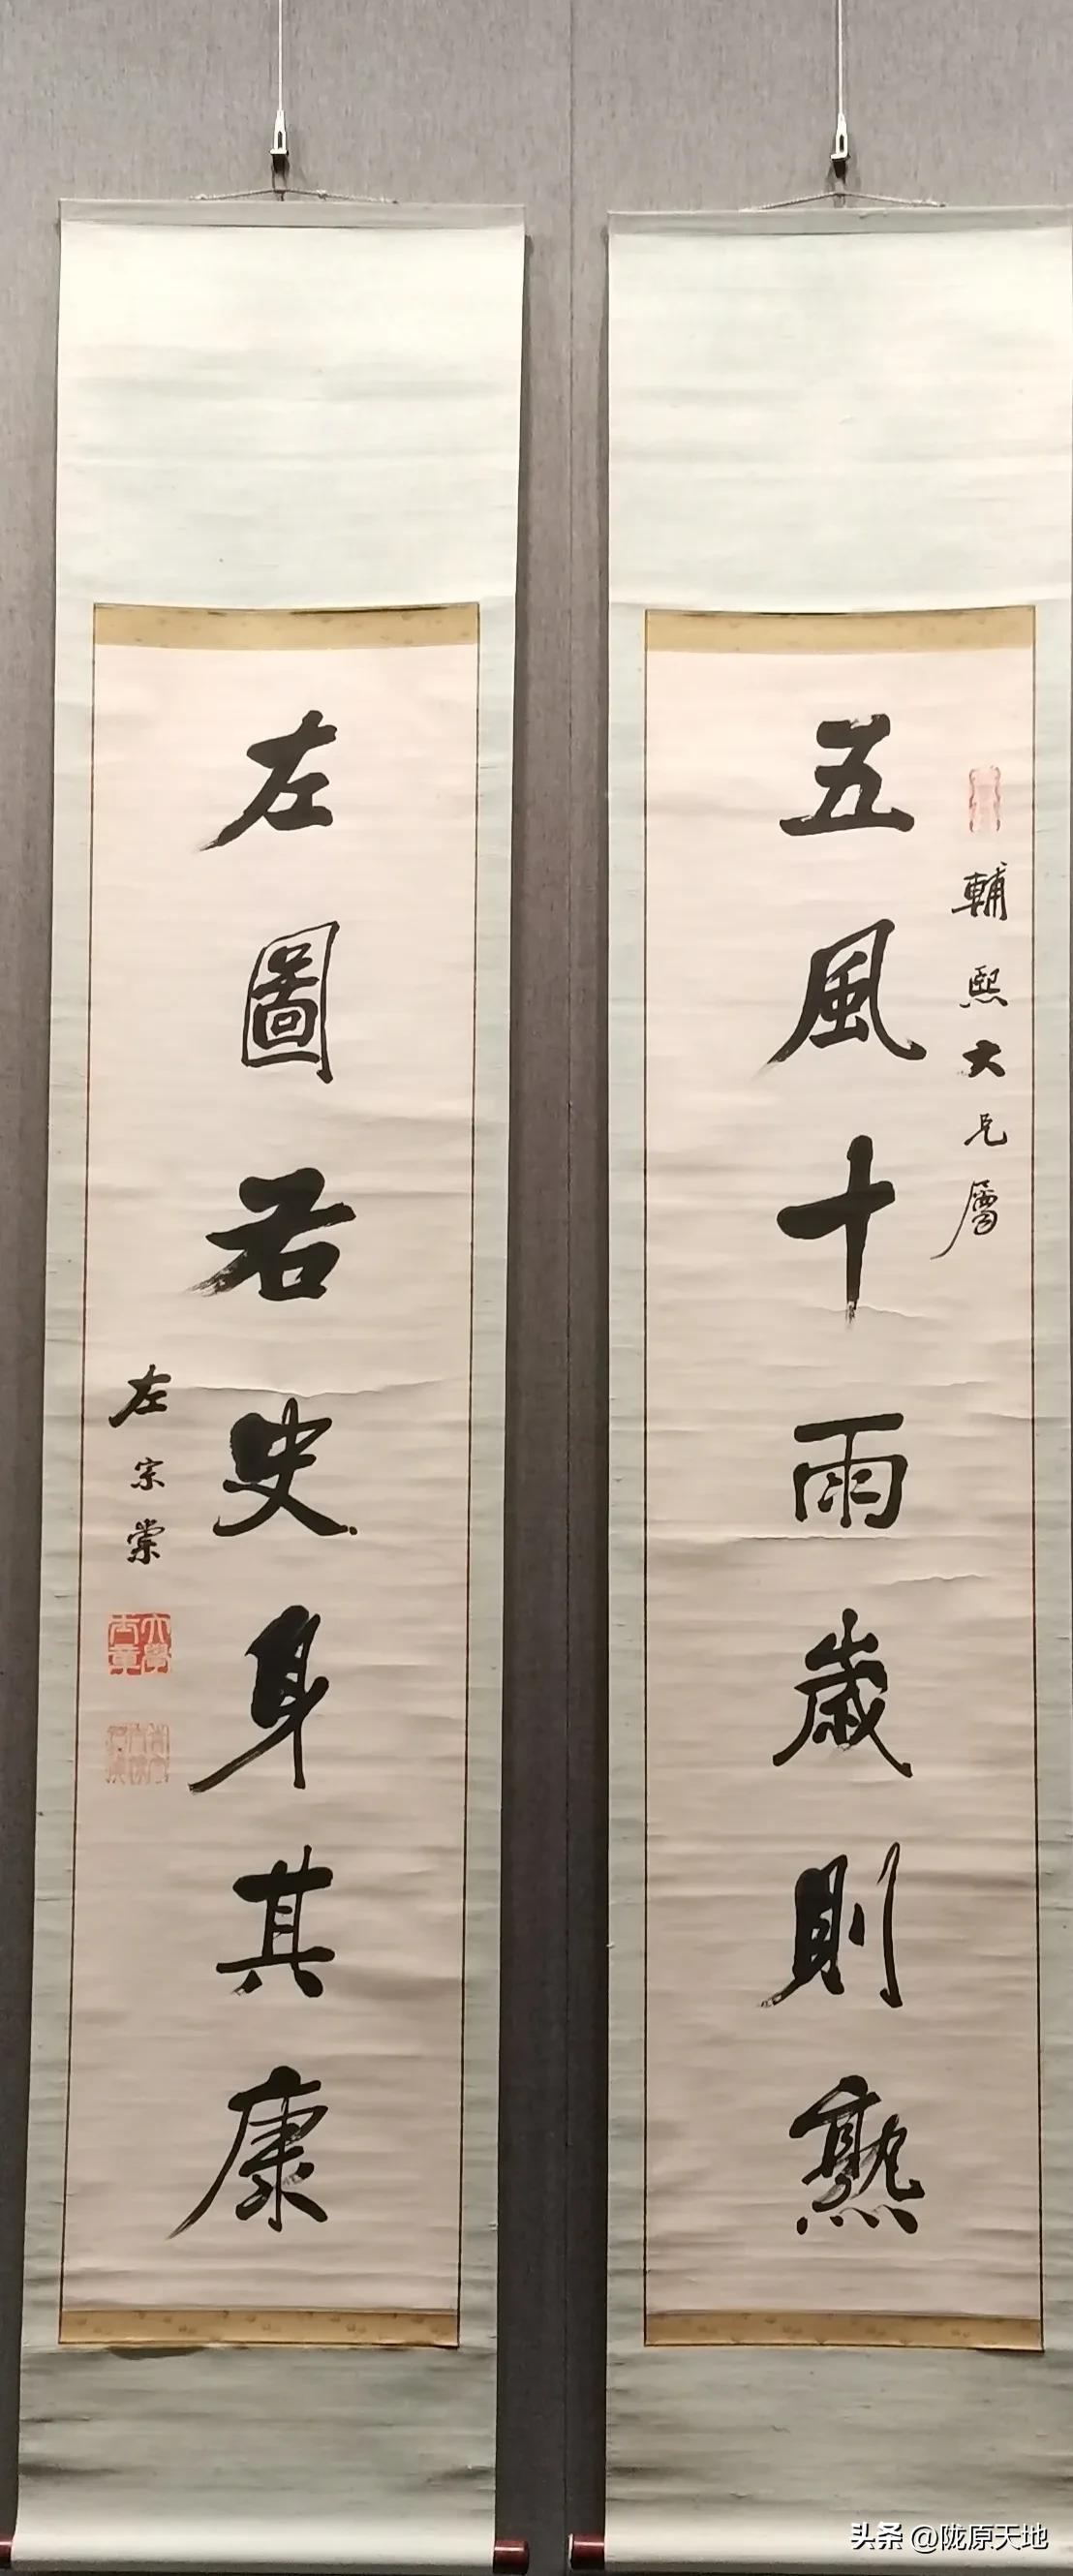 輔熙大兄屬
五風十雨歲則熟
左圖右史身其康
左宗棠
大學士章
头条 @陇原天地